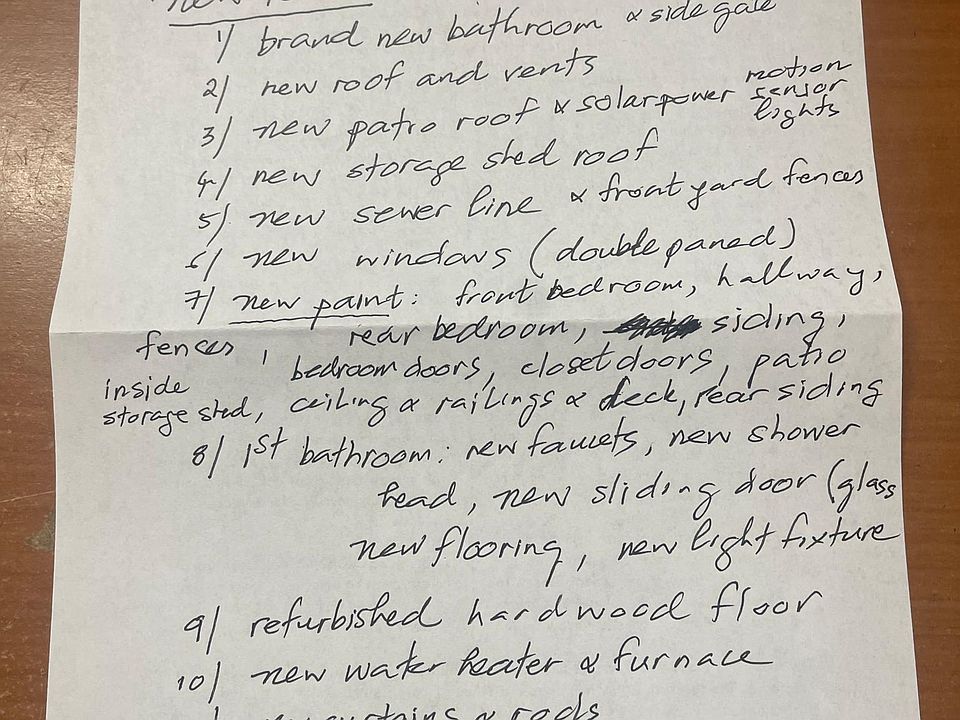 new
1/ brand new bathroom & side gate
2/ new roof and vents
3/ new patio roof & solar power motion sensor lights
4/ new storage shed roof
5/ new sewer line & front yard fences
6/ new windows (double paned)
7/ new paint: front bedroom, hallway,
rear bedroom, siding,
fences, bedroom doors, closet doors, patio
inside storage shed, ceiling & railings & deck, rear siding
8/ 1st bathroom: new faucets, new shower
head, new sliding door (glass
new flooring, new light fixture
9/ refurbished hardwood floor
10/ new water heater & furnace
curtains & rods